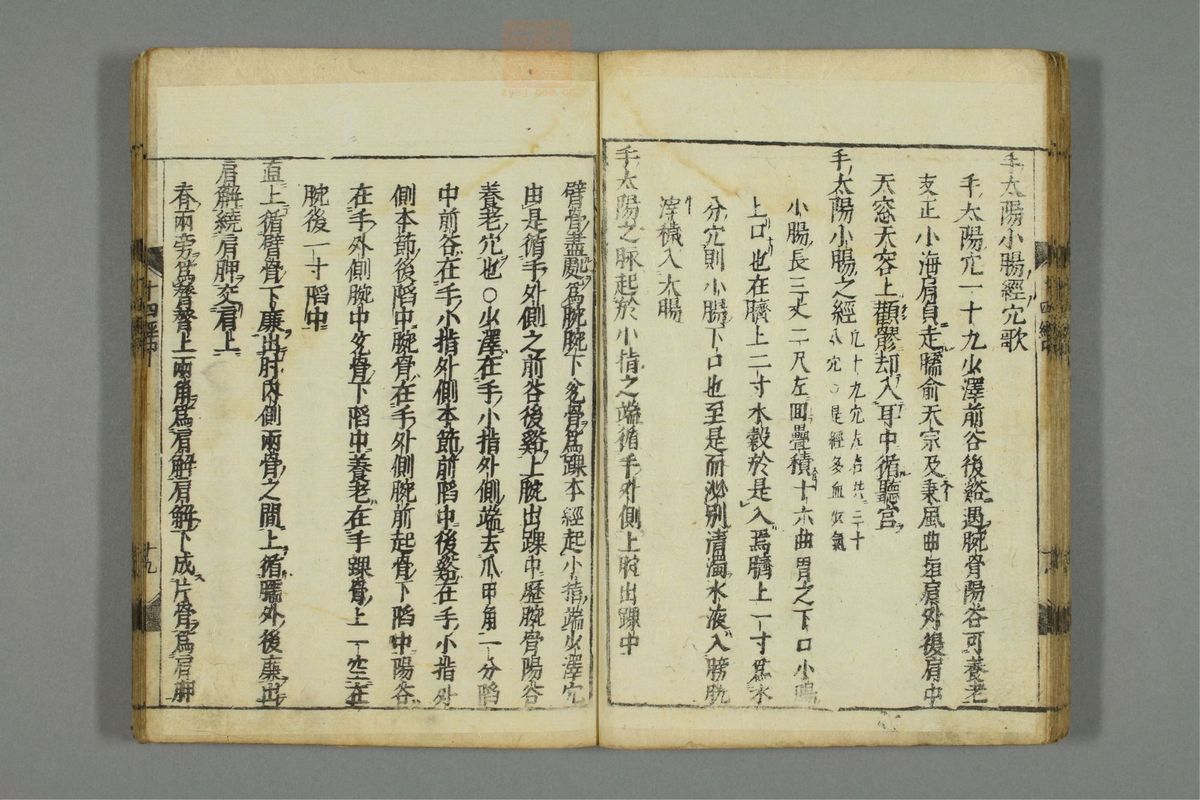 手太陽小腸經穴歌
手太陽穴一十九少澤前谷後谿遇腕骨陽谷可養老
支正小海肩貞走臑俞天宗及秉風曲垣肩外復肩中
天窓天容上顴髎却入耳中循聽宮
手太陽小腸之經
凡十九穴左右共三十
八穴○是經多血少氣
小腸長三丈二尺左回疊積十六曲胃之下口小腸
上口也在臍上二寸水穀於是入焉臍上一寸為水
分穴則小腸下口也至是而泌別清濁水液入膀胱
滓穢入大腸
手太陽之脉起於小指之端循手外側上腕出踝中
臂骨盡處為腕腕下兌骨為踝本經起小指端少澤穴
由是循手外側之前谷後谿上腕出踝中歷腕骨陽谷
養老穴也○少澤在手小指外側端去爪甲角一分陷
中前谷在手小指外側本節前陷中後谿在手小指外
側本節後陷中腕骨在手外側腕前起骨下陷中陽谷
在手外側腕中兌骨下陷中養老在手踝骨上一空在
腕後一寸陷中
直上循臂骨下廉出肘內側兩骨之間上循臑外後廉出
肩解繞肩胛交肩上
脊兩旁為膂膂上兩角為肩解肩解下成片骨為肩胛
十四經中
十九